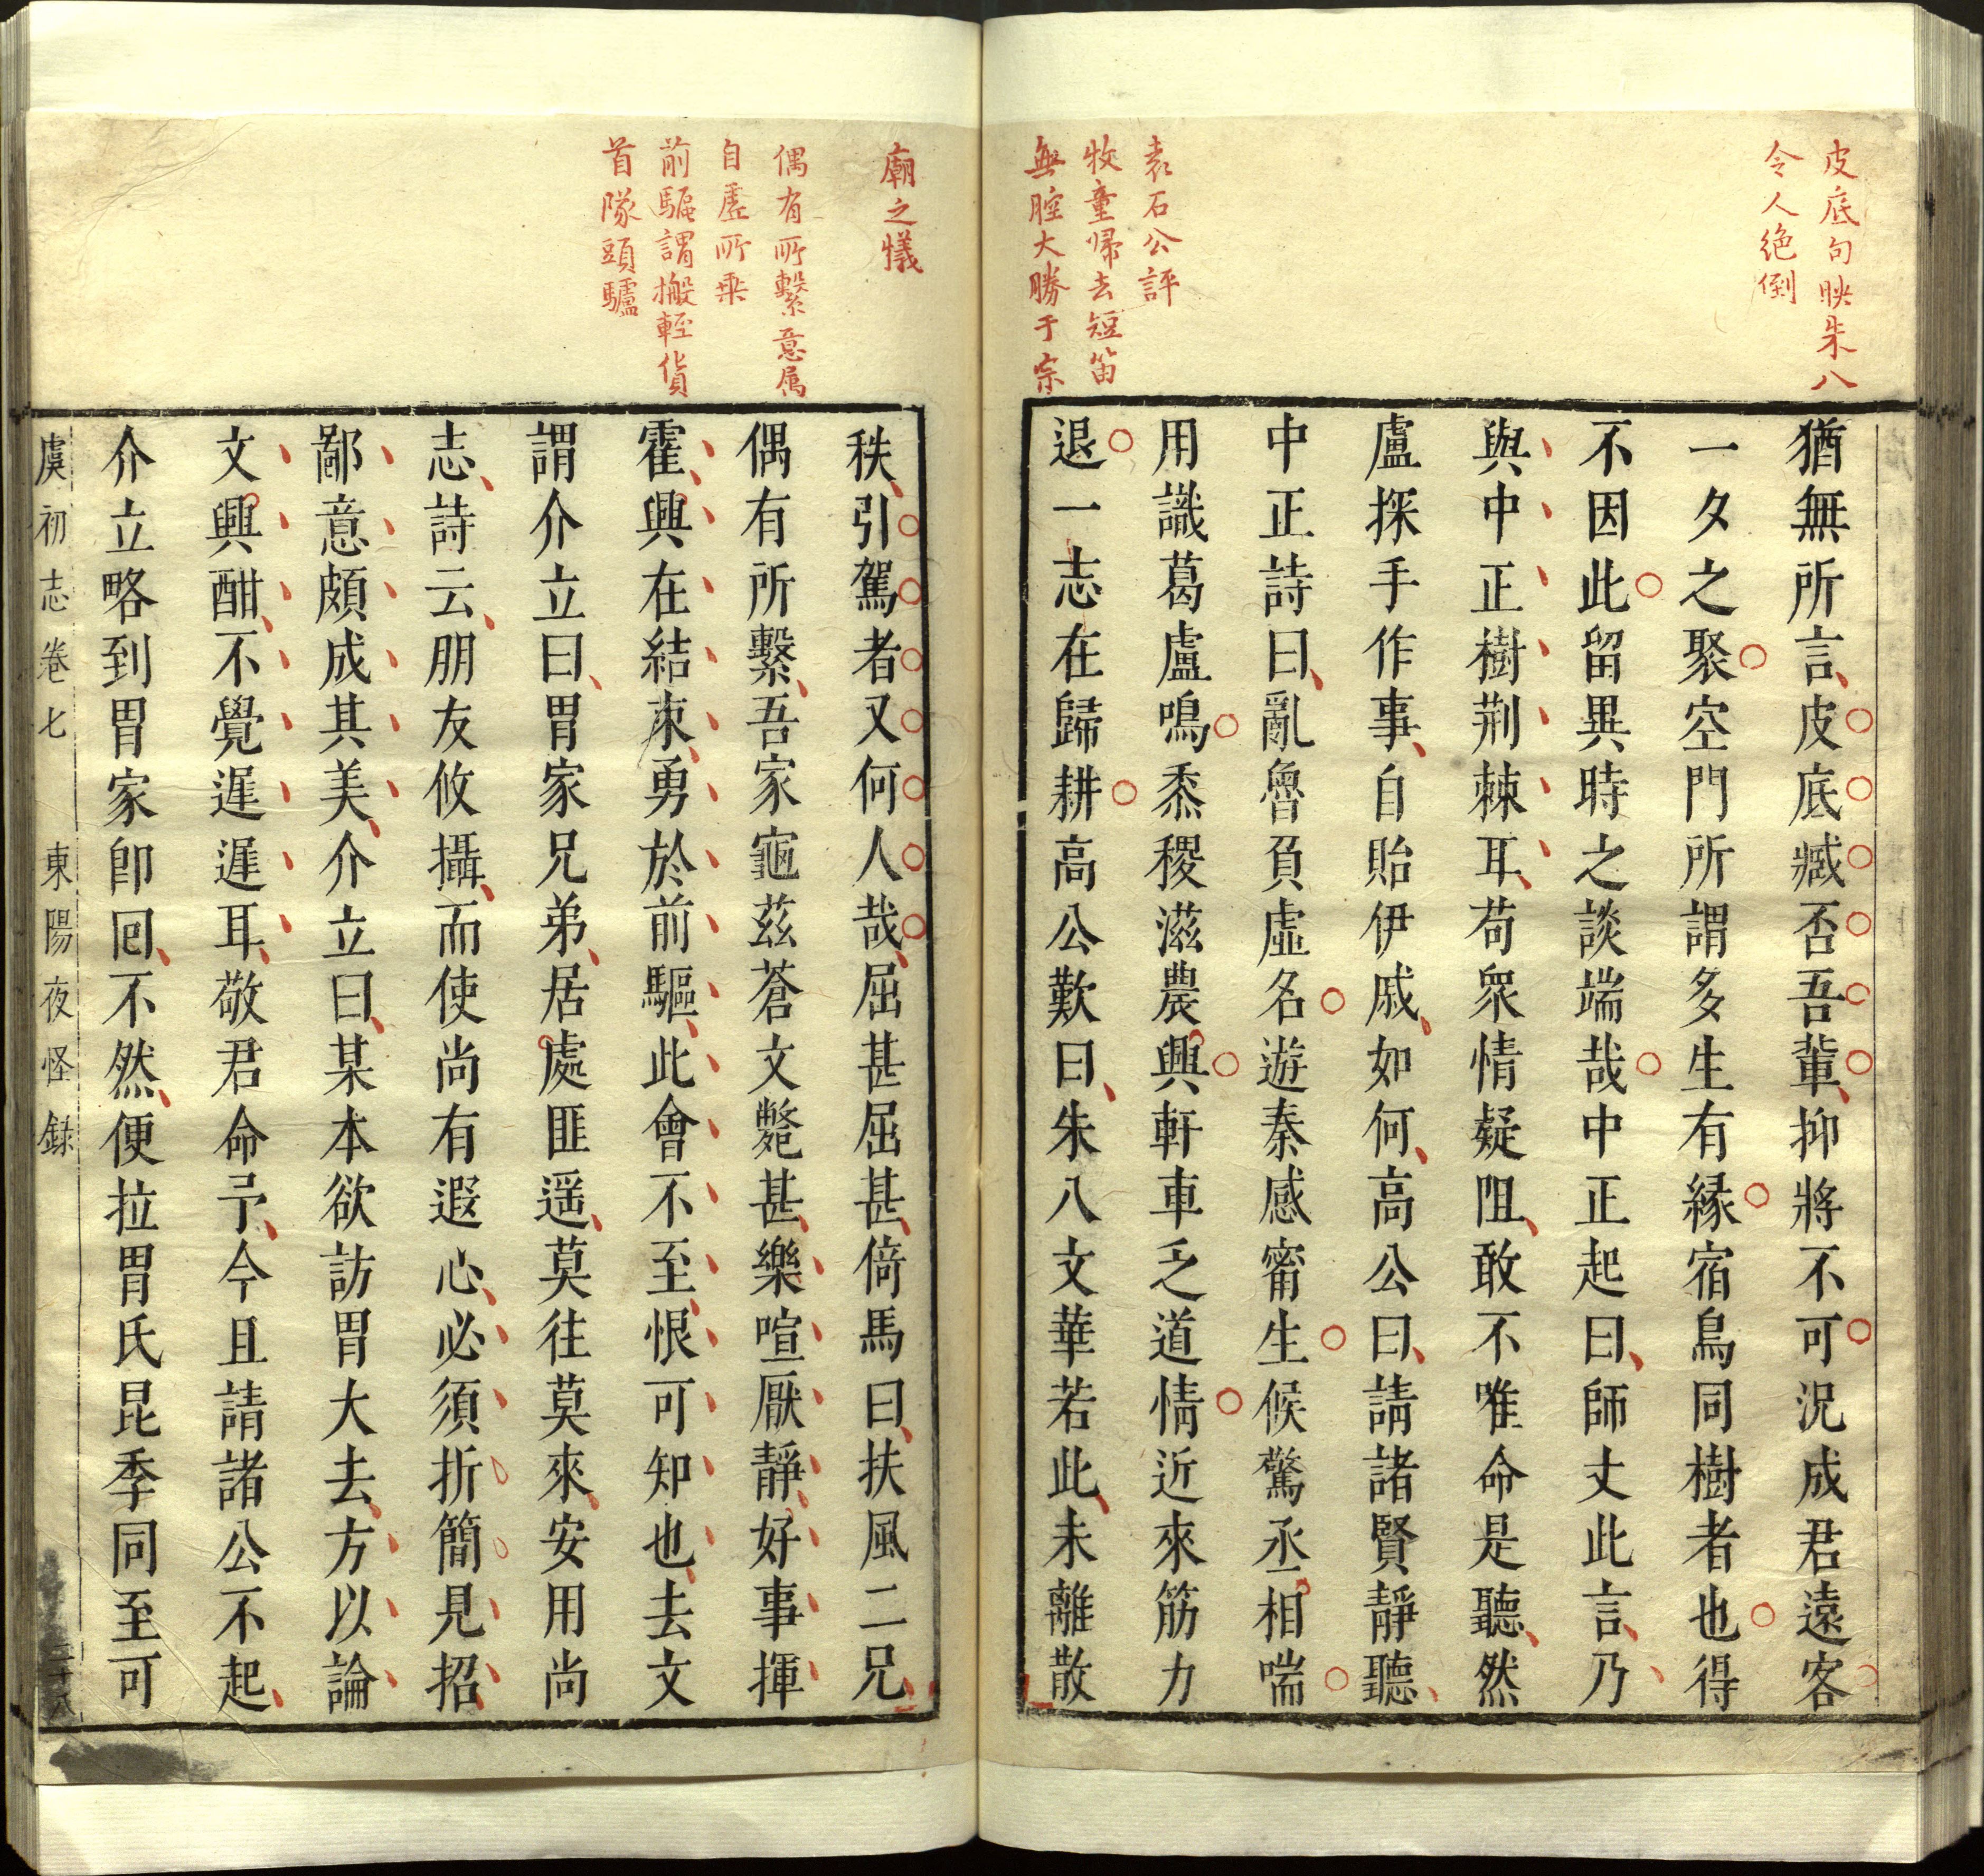 皮底句映朱八
令人绝倒
袁石公評
牧童歸去短笛
無腔大勝于宗
猶無所言皮底臧否吾輩抑將不可況成君遠客
一夕之聚空門所謂多生有緣宿鳥同樹者也得
不因此留異時之談端哉中正起曰師丈此言乃
與中正樹荆棘耳苟衆情疑阻敢不唯命是聽然
盧探手作事自貽伊戚如何高公曰請諸賢靜聽
中正詩曰亂魯負虛名遊秦感甯生候驚丞相喘
用識葛盧鳴黍稷滋農興軒車乏道情近來筋力
退一志在歸耕高公歎曰朱八文華若此未離散
廟之犠
偶有所繫意属
自區所乗
前驅謂搬輕貨
首隊頭驢
秩引駕者又何人哉屈甚屈甚倚馬曰扶風二兄
偶有所繫吾家龜茲蒼文斃甚樂喧厭靜好事揮
霍興在結束勇於前驅此會不至恨可知也去文
謂介立曰胃家兄弟居處匪遥莫往莫來安用尚
志詩云朋友攸攝而使尚有遐心必須折簡見招
鄙意頗成其美介立曰某本欲訪胃大去方以論
文興酣不覺遲遲耳敬君命予今且請諸公不起
介立略到胃家卽回不然便拉胃氏昆季同至可
虞初志卷七 東陽夜怪録 二十八